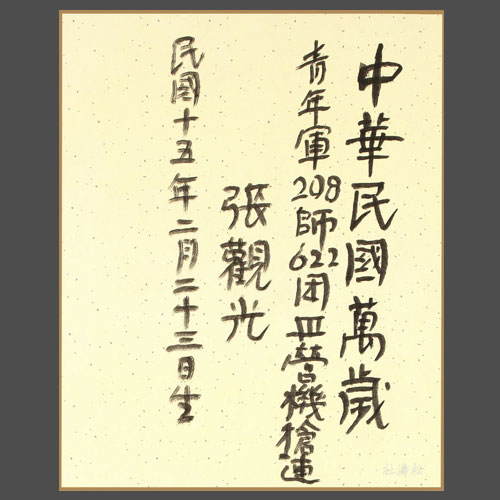 中華民國萬歲
青年軍208師622团皿營機槍連
張觀光
民國十五年二月二十三日生